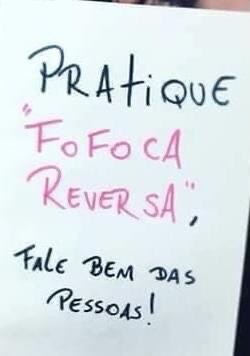 PRATIQUE
"FOFOCA
REVERSA",
FALE BEM DAS
PESSOAS!